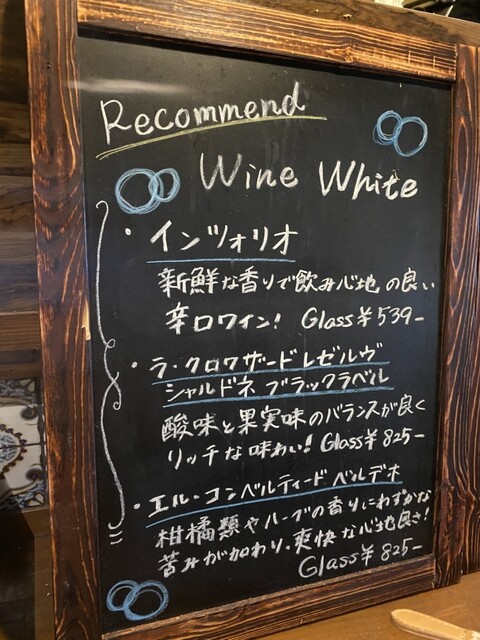 Recommend
Wine White
・インツォリオ
新鮮な香りで飲み心地の良い
辛口ワイン! Glass¥539-
・ラ・クロワザードレゼルヴ
シャルドネ ブラックラベル
酸味と果実味のバランスが良く
リッチな味わい! Glass¥825-
・エル・コンベルティード ベルデホ
柑橘類やハーブの香りにわずかな
苦みが加わり、爽快な心地良さ!
Glass¥825-